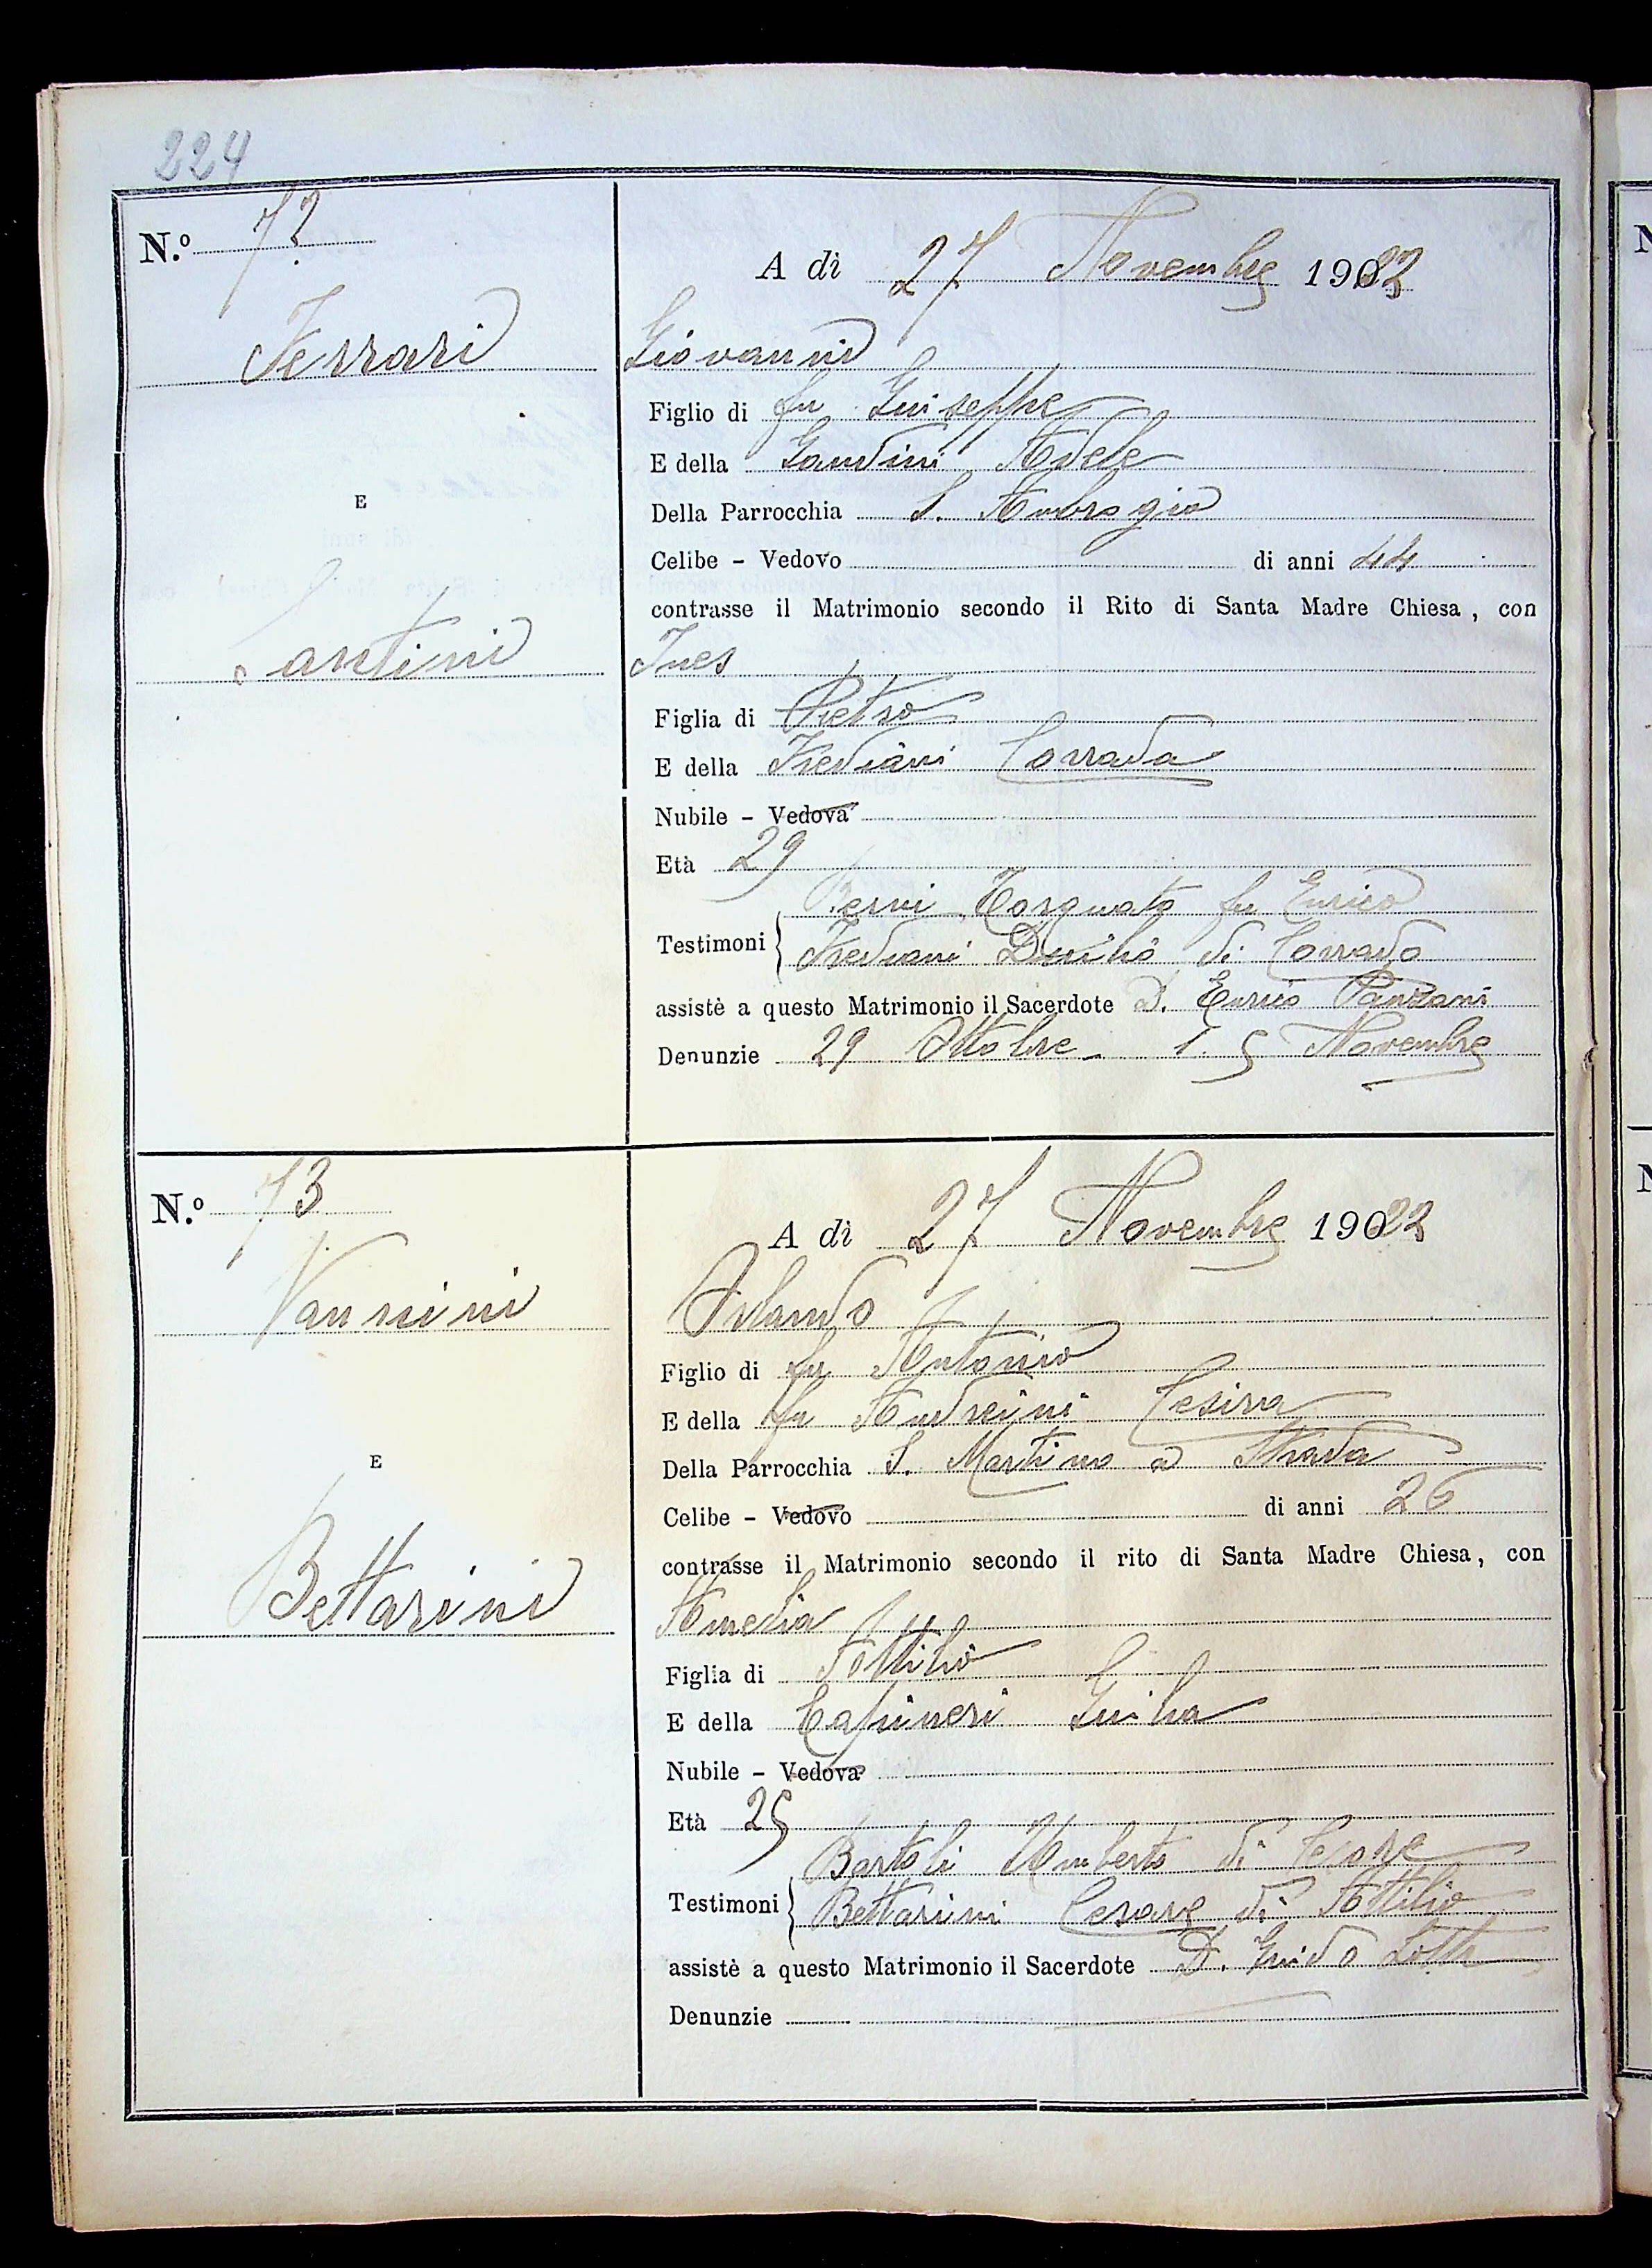 224
N.º 72
A dì 27 Novembre 1922
Ferrari
Giovanni
Figlio di fu Giuseppe
E della Gandini Adele
Della Parrocchia S. Ambrogio
E
Celibe - Vedovo di anni 44
contrasse il Matrimonio secondo il Rito di Santa Madre Chiesa, con
Santini
Ines
Figlia di Pietro
E della Frediani Corrada
Nubile - Vedova
Età 29
Berni Torquato fu Enrico
Testimoni Frediani Duilio di Corrado
assistè a questo Matrimonio il Sacerdote D. Enrico Panzani
Denunzie 29 Ottobre - 1. 5 Novembre
N.º 73
A dì 27 Novembre 1922
Vannini
Orlando
Figlio di fu Antonio
E della fu Andreini Cesira
Della Parrocchia S. Martino a Strada
E
Celibe - Vedovo di anni 26
contrasse il Matrimonio secondo il rito di Santa Madre Chiesa, con
Bettarini
Amelia
Figlia di Attilio
E della Capineri Giulia
Nubile - Vedova
Età 25
Bartoli Umberto di
Testimoni Bettarini Cesare di Attilio
assistè a questo Matrimonio il Sacerdote D. Guido Lotti
Denunzie